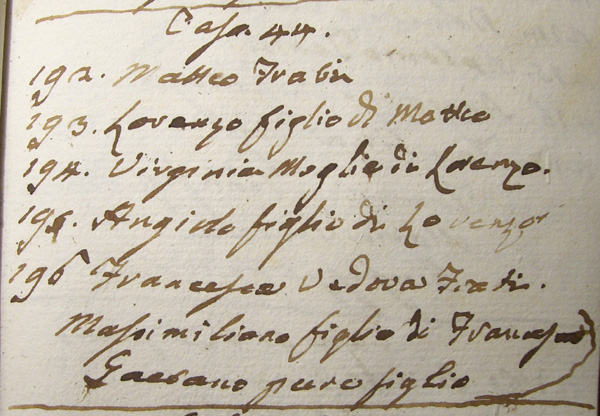 Casa 44.
192. Matteo Fratin
193. Lorenzo figlio di Matteo
194. Virginia Moglie di Lorenzo.
195. Angiolo figlio di Lorenzo
196 Francesca Vedova Fratin.
Massimiliano figlio di Francesca
Gaetano pure figlio